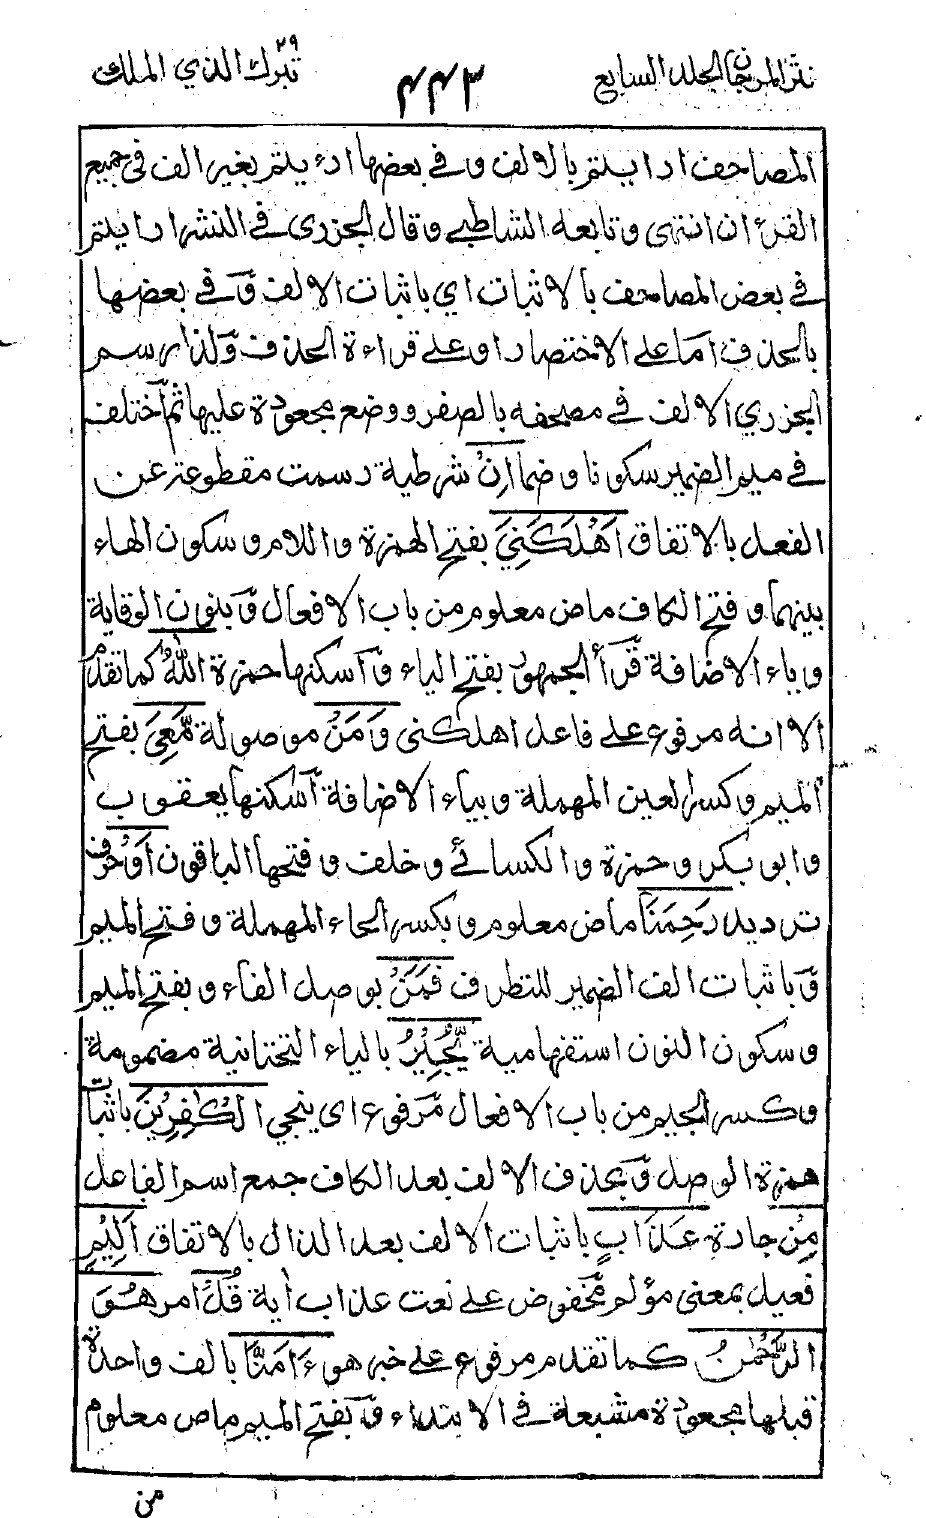 نثر المرجان الجلد السابع
٤٤٣
تبٰرك الذي الملك ٢٩
المصاحف ارايتم بالالف وفي بعضها ارءيتم بغير الف في جميع
القرءان انتهى وتابعه الشاطبي وقال الجزري في النشر ارايتم
في بعض المصاحف بالاثبات اي باثبات الالف وَفي بعضها
بالحذف اما على الاختصار او على قراءة الحذف وَلذا رسم
الجزري الالف في مصحفه بالصفر ووضع مجعودة عليها ثم اختلف
في ميم الضمير سكونا وضما اِنْ شرطية رسمت مقطوعة عن
الفعل بالاتفاق اَهْلَكَنِيَ بفتح الهمزة واللام وسكون الهاء
بينهما وفتح الكاف ماض معلوم من باب الافعال وَبنون الوقاية
وياء الاضافة قرأ الجمهور بفتح الياء وَاسكنها حمزة اللّٰهُ كما تقدم
الا انه مرفوع على فاعل اهلكني وَمَنْ موصولة مَّعِيَ بفتح
الميم وكسر العين المهملة وبياء الاضافة اَسكنها يعقوب
وابو بكر وحمزة والكسائي وخلف وفتحها الباقون اَوْ حرف
ترديد رَحِمَنَا ماض معلوم وبكسر الحاء المهملة وفتح الميم
وَباثبات الف الضمير للتطرف فَمَنْ بوصل الفاء وبفتح الميم
وسكون النون استفهامية يُّجِيْرُ بالياء التحتانية مضمومة
وكسر الجيم من باب الافعال مَرفوع اي ينجي الْكٰفِرِيْنَ باثبات
همزة الوصل وَبحذف الالف بعد الكاف جمع اسم الفاعل
مِنْ جارة عَذَابٍ باثبات الالف بعد الذال بالاتفاق اَلِيْمٍ
فعيل بمعنى مؤلم مخفوض على نعت عذاب اٰية قُلْ امر هُوَ
الرَّحْمٰنُ كما تقدم مرفوع على خبر هو ءَامَنَّا بالف واحدة
قبلها مجعودة مشبعة في الابتداء وَبفتح الميم ماض معلوم
من